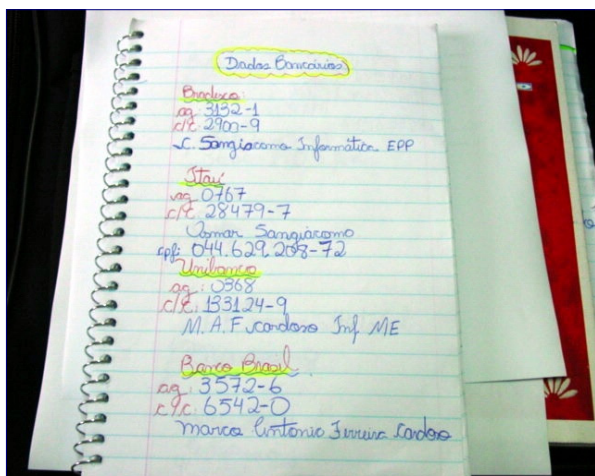 Dados Bancários
Bradesco:
ag: 3132-1
c/c: 2900-9
C. Sangiacomo Informática EPP
Itaú
ag 0767
c/c 28479-7
Sangiácomo
cpf: 044.629.208-72
Unibanco
ag: 0368
c/c: 133124-9
M. A. F cardoso Inf ME
Banco Brasil
ag: 3572-6
c/c: 6542-0
Marco Antonio Ferreira Cardoso